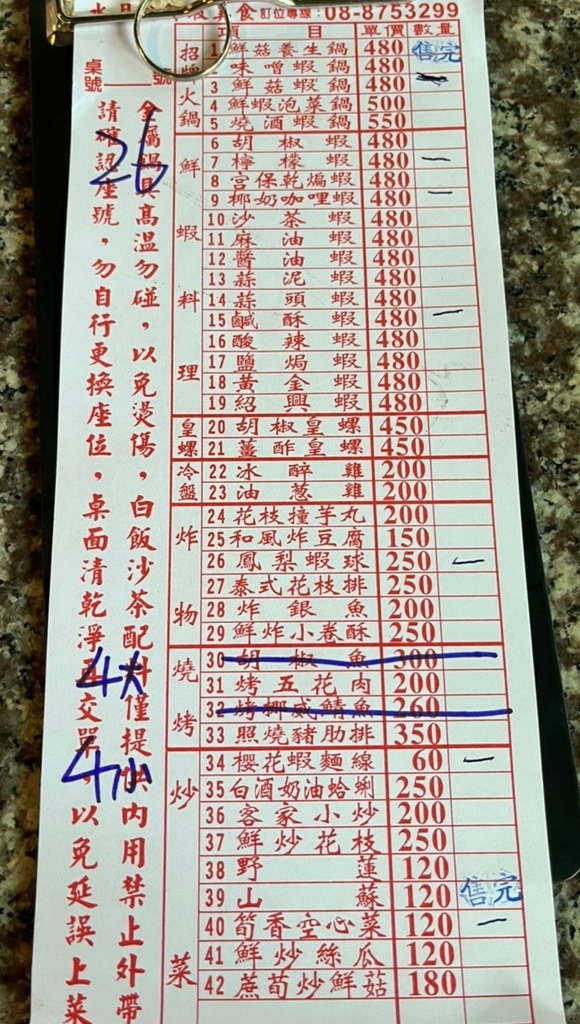 美食 訂位專線：08-8753299
項 目 單價 數量
招牌火鍋
1 鮮菇養生鍋 480 售完
2 味噌蝦鍋 480
3 鮮菇蝦鍋 480
4 鮮蝦泡菜鍋 500
5 燒酒蝦鍋 550
鮮蝦料理
6 胡椒蝦 480
7 檸檬蝦 480 一
8 宮保乾煸蝦 480
9 椰奶咖哩蝦 480 一
10 沙茶蝦 480
11 麻油蝦 480
12 醬油蝦 480
13 蒜泥蝦 480
14 蒜頭蝦 480
15 鹹酥蝦 480 一
16 酸辣蝦 480
17 鹽焗蝦 480
18 黃金蝦 480
19 紹興蝦 480
皇螺
20 胡椒皇螺 450
21 薑酢皇螺 450
冷盤
22 冰醉雞 200
23 油蔥雞 200
炸物
24 花枝撞芋丸 200
25 和風炸豆腐 150
26 鳳梨蝦球 250 一
27 泰式花枝排 250
28 炸銀魚 200
29 鮮炸小卷酥 250
燒烤
30 胡椒魚 300
31 烤五花肉 200
32 烤挪威鯖魚 260
33 照燒豬肋排 350
炒菜
34 櫻花蝦麵線 60 一
35 白酒奶油蛤蜊 250
36 客家小炒 200
37 鮮炒花枝 250
38 野蓮 120
39 山蘇 120 售完
40 筍香空心菜 120 一
41 鮮炒絲瓜 120
42 蔗筍炒鮮菇 180
桌號 號
26
金屬鍋具高溫勿碰，以免燙傷，白飯沙茶配料僅提供內用禁止外帶
請確認座號，勿自行更換座位，桌面清乾淨再交單，以免延誤上菜
4大
4小